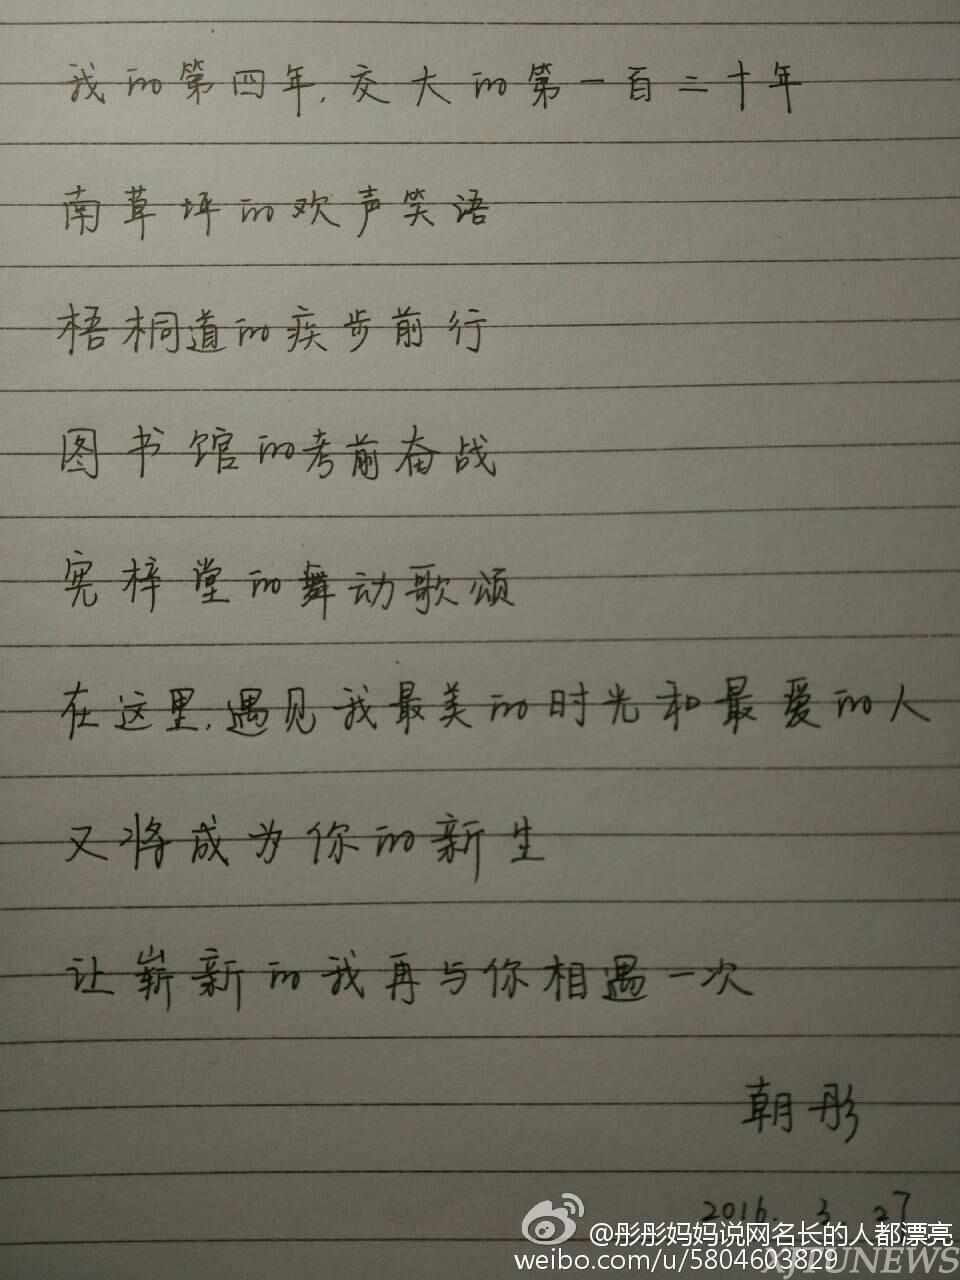 我的第四年，交大的第一百二十年
南草坪的欢声笑语
梧桐道的疾步前行
图书馆的考前奋战
宪梓堂的舞动歌颂
在这里，遇见我最美的时光和最爱的人
又将成为你的新生
让崭新的我再与你相遇一次
朝彤
2016.3.27
@彤彤妈妈说网名长的人都漂亮
weibo.com/u/5804603829
XJTUNEWS